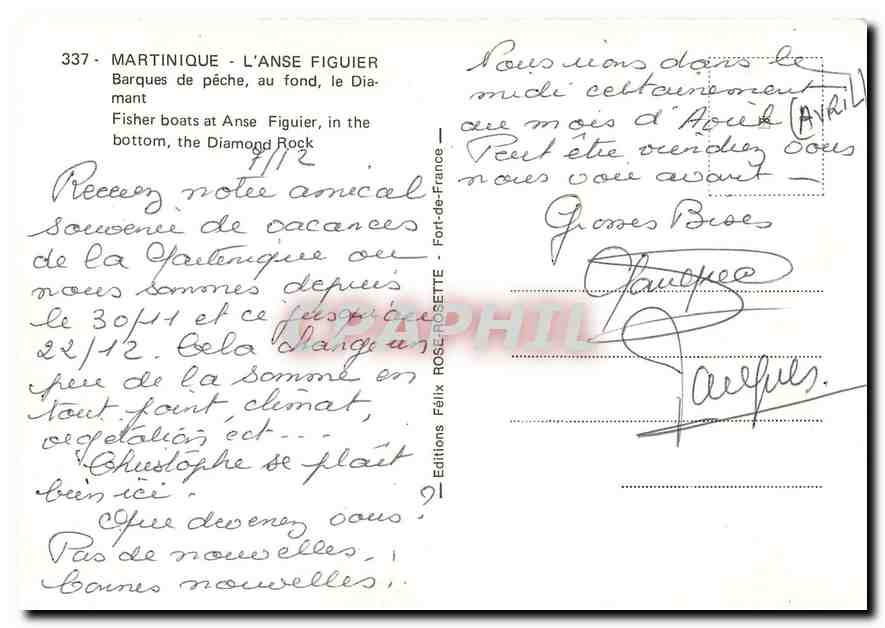 337 - MARTINIQUE - L'ANSE FIGUIER
Barques de pêche, au fond, le Dia-
mant
Fisher boats at Anse Figuier, in the
bottom, the Diamond Rock
7/12
Recevez notre amical
souvenir de vacances
de la Martinique ou
nous sommes depuis
le 30/11 et ce jusqu'au
22/12. Cela change un
peu de la Somme en
tout point, climat,
végétation ect---
Christophe se plaît
bien ici.
Que devenez vous?
Pas de nouvelles,
bonnes nouvelles.
Editions Félix ROSE-ROSETTE - Fort-de-France
Nous irons dans le
midi certainement
au mois d'Avril (AVRIL)
Peut être viendrez vous
nous voir avant -
Grosses Bises
Jacques.
CPAPHIL